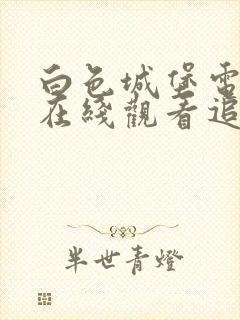 白色城堡電
在綫觀看追
半世青燈